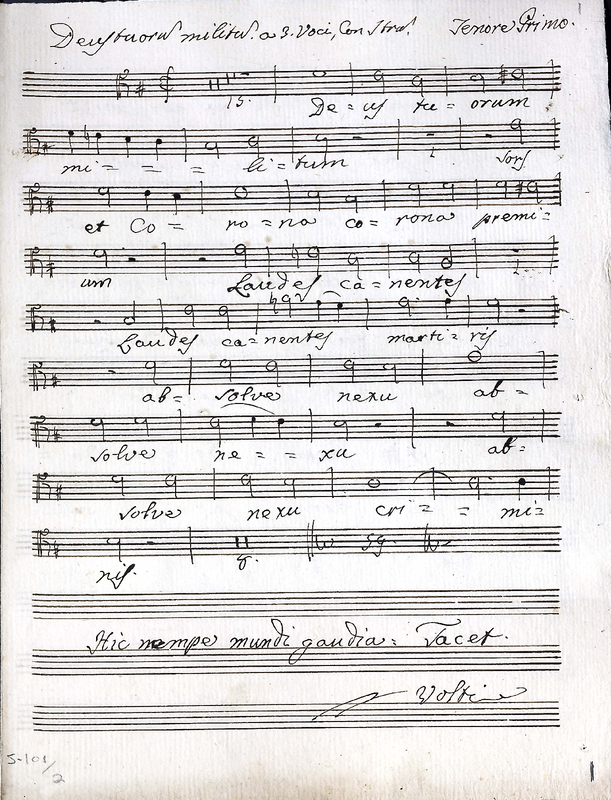 Deus tuorū militū. a 3. Voci, Con Strū. Tenore Primo.
15. De = us tu = orum
mi = = = li = tum 1 Sors
et Co = ro = na co = rona premi =
um Laudes ca = nentes 1
Laudes ca = nentes marti = ris
ab = solve nexu ab =
solve ne = = xu ab =
solve nexu cri = = mi =
nis. 8.
Hic nempe mundi gaudia = Tacet.
Volti
S-101/2